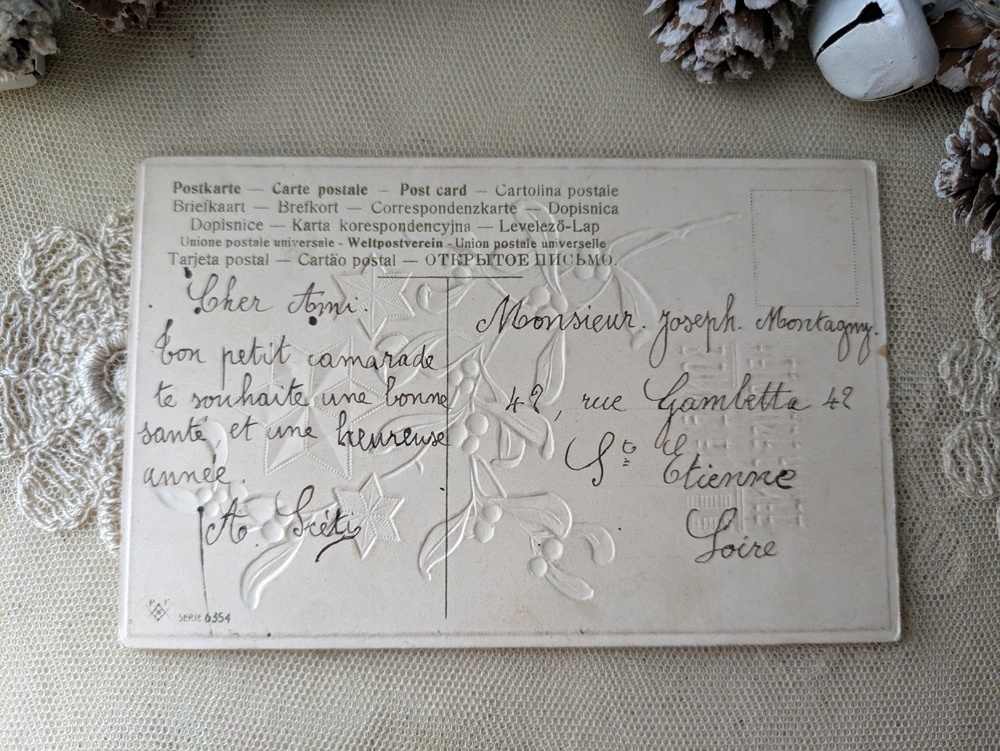 Postkarte — Carte postale — Post card — Cartolina postale
Briefkaart — Brefkort — Correspondenzkarte — Dopisnica
Dopisnice — Karta korespondencyjna — Levelező-Lap
Unione postale universale - Weltpostverein - Union postale universelle
Tarjeta postal — Cartão postal — ОТКРЫТОЕ ПИСЬМО.
Cher Ami.
Ton petit camarade
te souhaite une bonne
santé, et une heureuse
année.
A.
Monsieur. Joseph. Montagny.
42, rue Gambetta 42
St Etienne
Loire
SERIE 6354